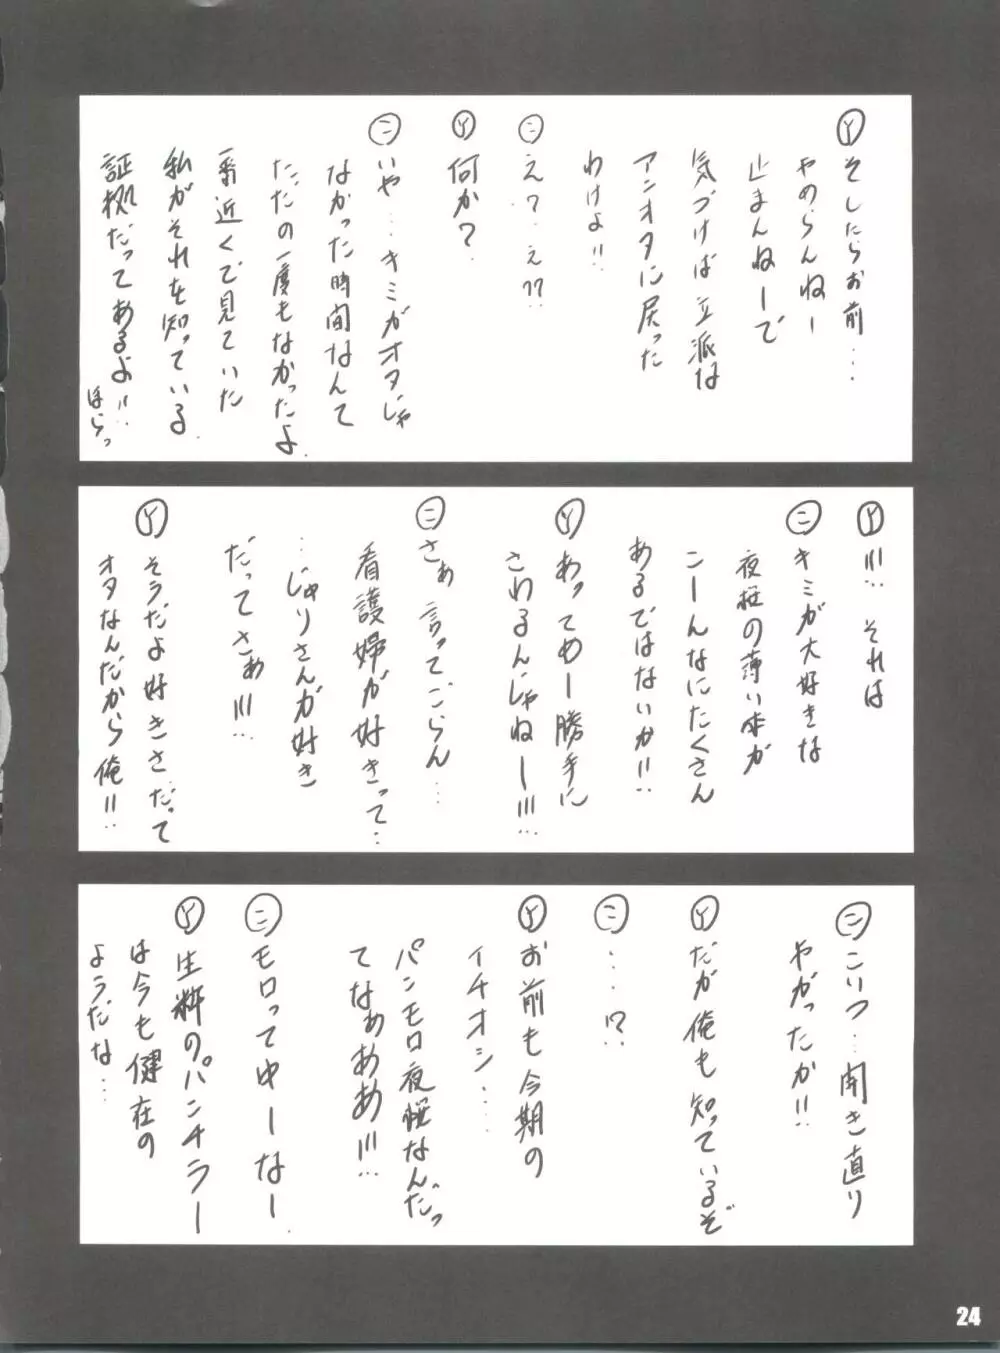 Ⓨそしたらお前...
やめらんねー
止まんねーで
気づけば立派な
アンオタに戻った
わけよ!!
㊁え?..え??
Ⓨ何か?
㊁いや...キミがオタじゃ
なかった時間なんて
ただの一度もなかったよ
一番近くで見ていた
私がそれを知っている.
証拠だってあるよ!!
ほらっ
Ⓨ!!!... それは
㊁キミが大好きな
夜桜の薄い本が
こーんなにたくさん
あるではないか!!
Ⓨあってめー勝手に
さわるんじゃねー!!!...
㊁さぁ言ってごらん...
看護婦が好きって..
...じゅりさんが好き
だってさぁ!!!...
Ⓨそうだよ好きさだって
オタなんだから俺!!
㊁こいつ...開き直り
やがったか!!
Ⓨだが俺も知っているぞ
㊁...!?
Ⓨお前も今期の
イチオシ....
パンモロ夜桜なんだっ
てなぁああ!!!...
㊁モロってゆーなー.
Ⓨ生粋のパンチラー
は今も健在の
ようだな...
24